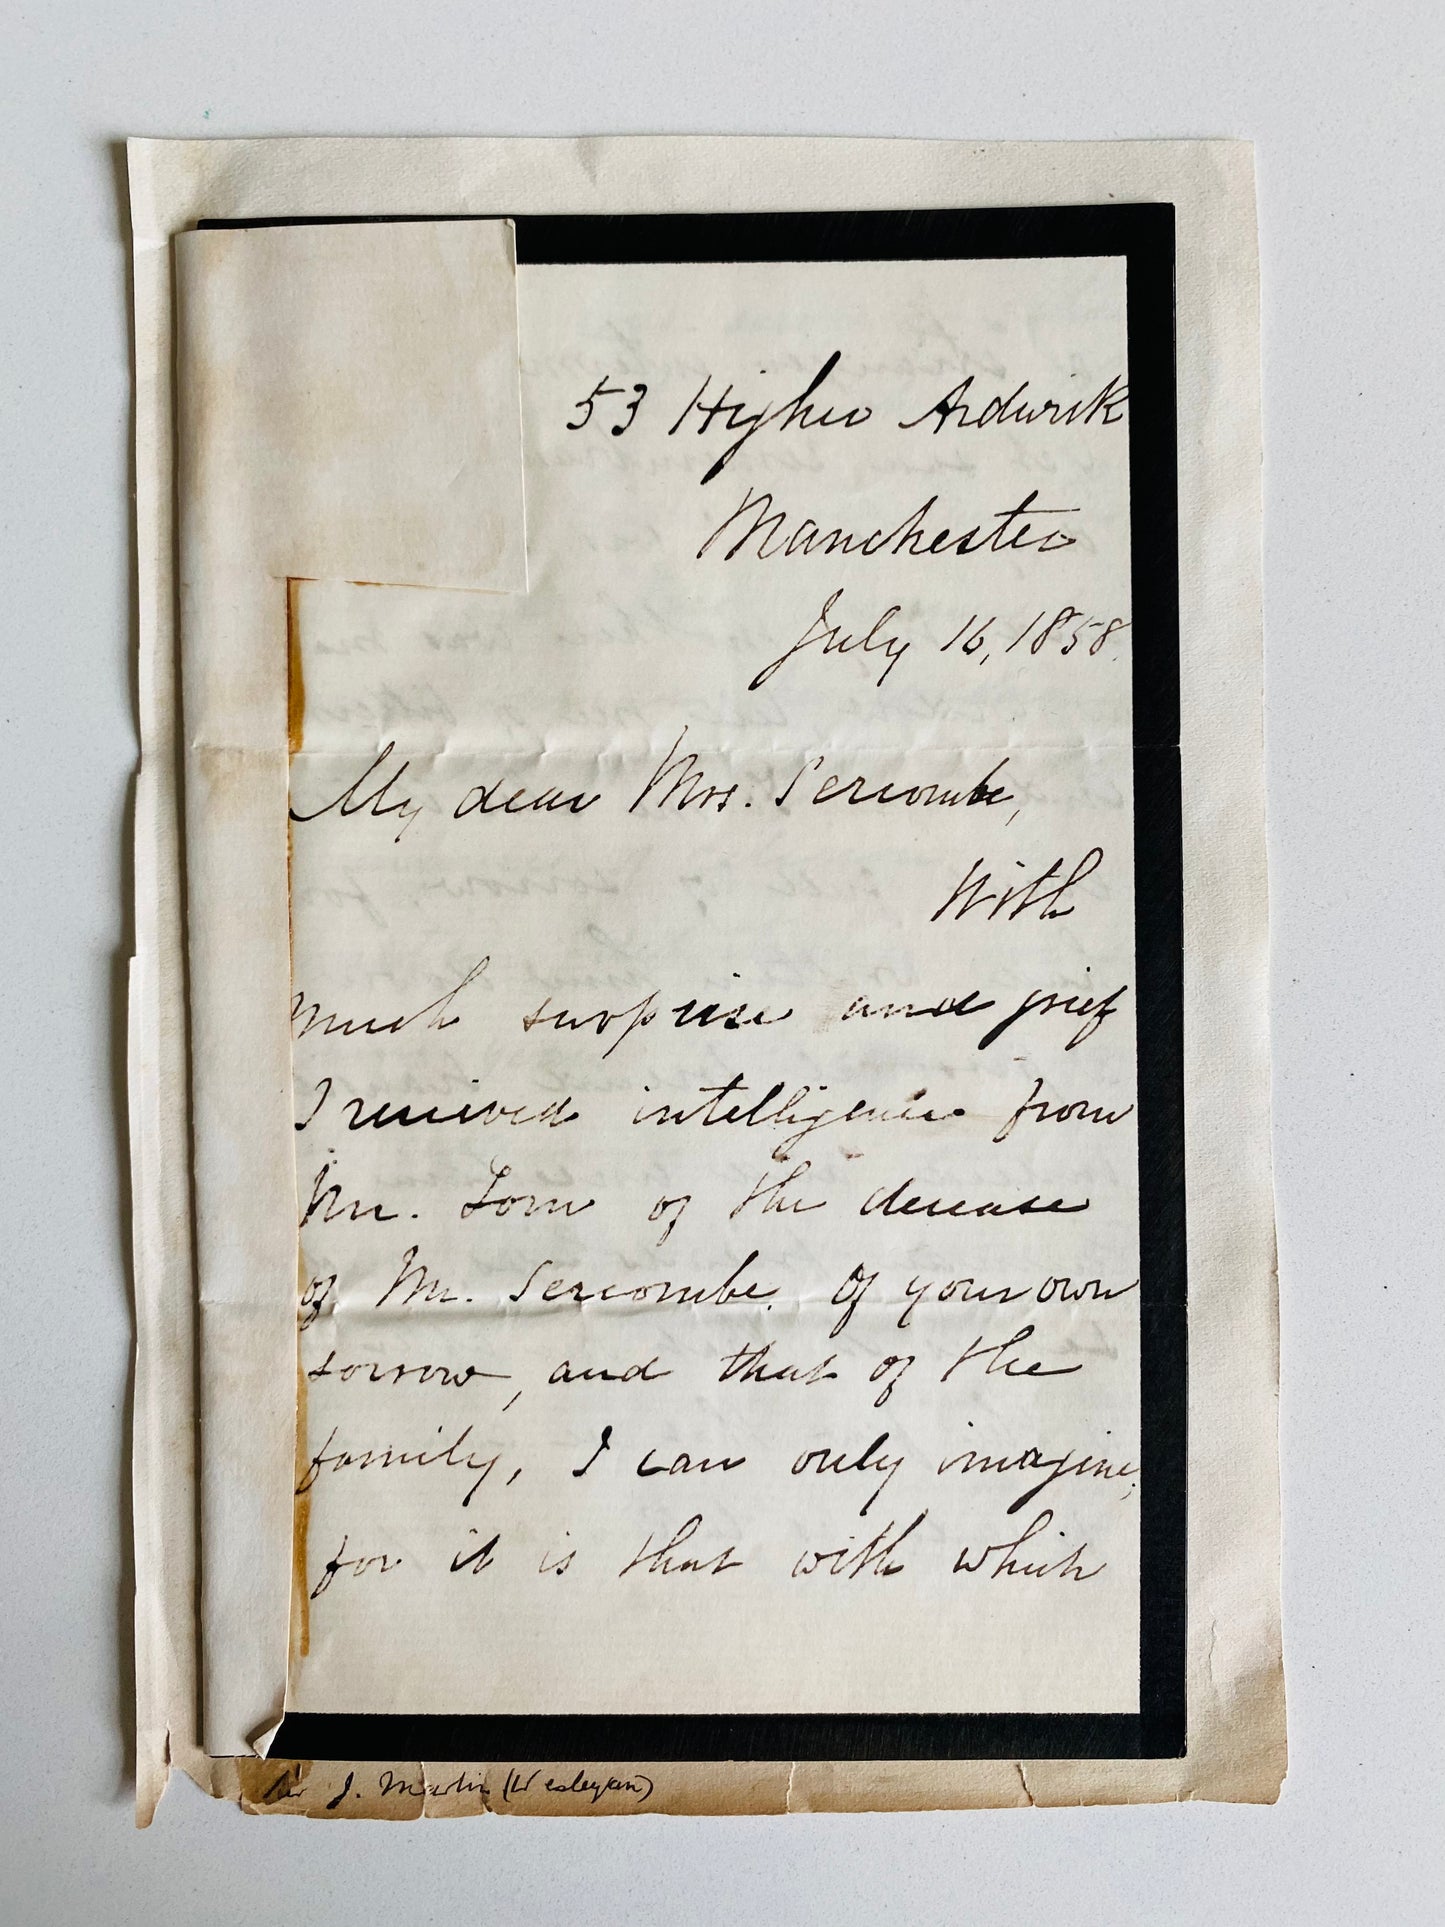 53 Higher Ardwick
Manchester
July 16, 1858.
My dear Mrs. Sercombe,
With
much surprise and grief
I received intelligence from
Mr. of the decease
of Mr. Sercombe. Of your own
sorrow, and that of the
family, I can only imagine;
for it is that with which
J. Martin (Wesleyan)